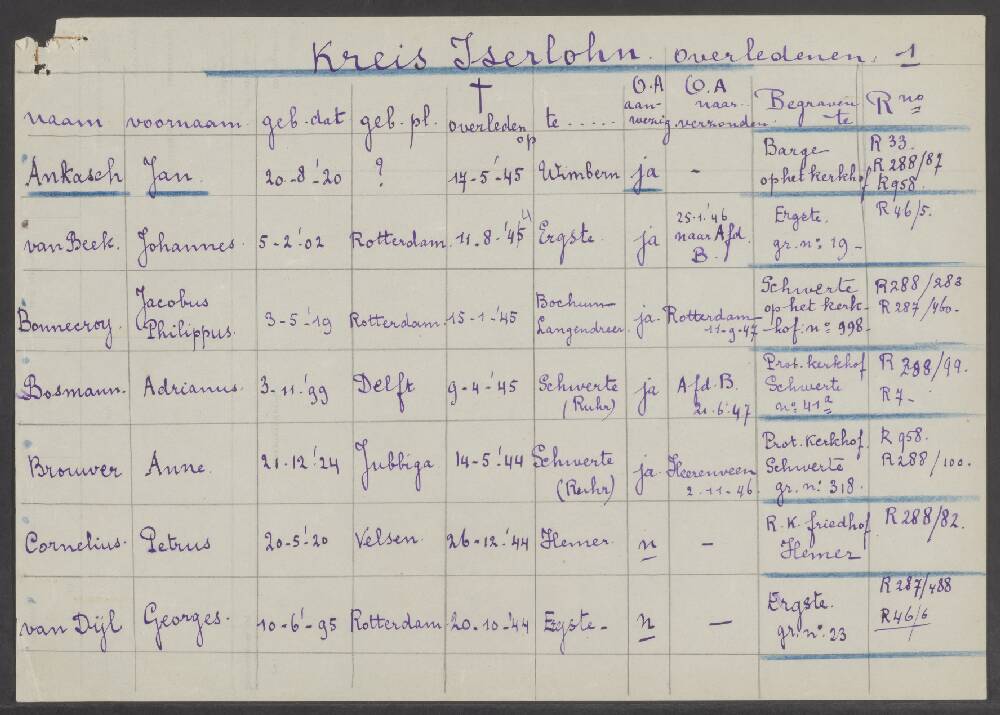 Kreis Iserlohn. overledenen. 1
naam voornaam. geb. dat geb. pl. † overleden op te ...... O.A aanwezig O.A naar verzonden. Begraven te R no
Ankasch Jan 20-8-'20 ? 17-5-'45 Wimbern ja - Barge op het kerkhof R 33. R 288/87 R 958.
van Beek. Johannes. 5-2-'02 Rotterdam. 11-8-'45 4 Ergste. ja 25-1-'46 naar Afd. B. Ergste. gr. no: 19- R 46/5.
Bonnecroy. Jacobus Philippus. 3-5-'19 Rotterdam. 15-1-'45 Bochum-Langendreer. ja. Rotterdam- 11-9-47 Schwerte op het kerk-hof: no 998. R 288/283 R 287/460.-
Bosmann. Adrianus. 3-11-'99 Delft 9-4-'45 Schwerte (Ruhr) ja Afd. B. 21-6-'47 Prot. kerkhof Schwerte no: 41a R 288/99. R 7-
Brouwer Anne. 21-12-'24 Jubbiga 14-5-'44 Schwerte (Ruhr) ja. Heerenveen 2-11-46. Prot. kerkhof. Schwerte gr. no: 318. R 958. R 288/100.
Cornelius. Petrus 20-5-'20 Velsen. 26-12-'44 Hemer. n - R.K. friedhof Hemer R 288/82.
van Dijl Georges. 10-6-'95 Rotterdam 20-10-'44 Egste- n - Ergste. gr. no: 23 R 287/488 R 46/6